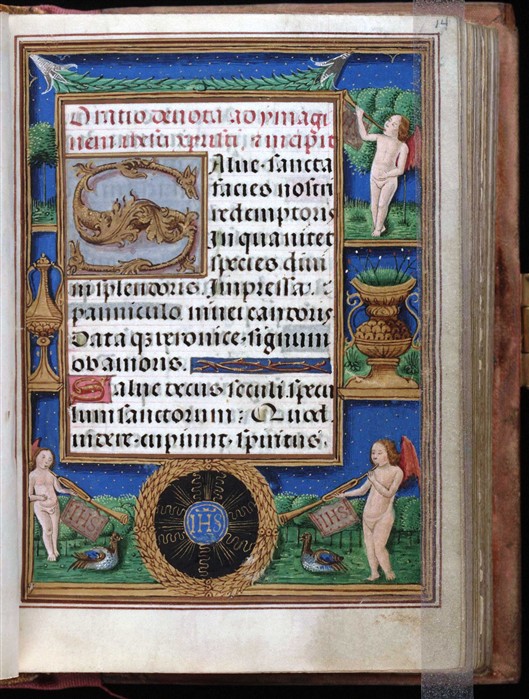 14
Oratio devota ad ymagi
nem ihesu xpristi, incipit
Salve sancta
facies nostri
redemptoris
In qua nitet
species divi
ni splendoris. Impressa
panniculo nivei candoris
Data q veronice signum
ob amoris.
Salve decus seculi specu
lum sanctorum: Quod
videre cupiunt spiritus
IHS
IHS
IHS